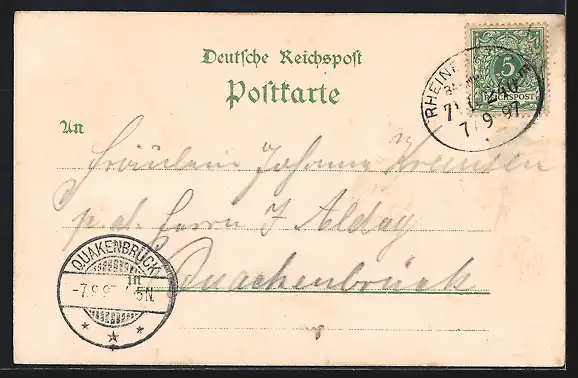 Deutsche Reichspost
Postkarte
5
REICHSPOST
RHEINE
7/9 97
An
Fräulein Johanna
p. d. Herrn J. Alday
in Quackenbrück
QUAKENBRÜCK
-7.9.97 5N.